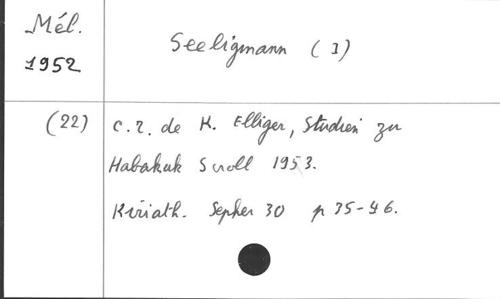 Mél.
1952
Seeligmann (3)
(22)
C.r. de K. Elliger, Studien zu
Habakuk Scroll 1953.
Kiriath. Sepher 30 p 35-46.